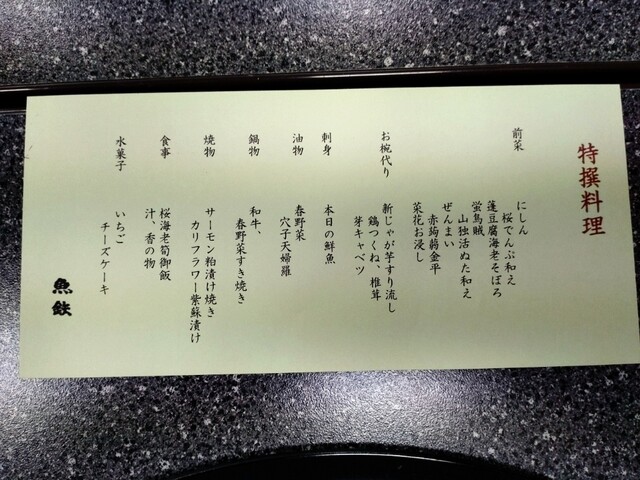 特撰料理
前菜
にしん
桜でんぶ和え
蓬豆腐海老そぼろ
蛍烏賊
山独活ぬた和え
ぜんまい
赤蒟蒻金平
菜花お浸し
お椀代り
新じゃが芋すり流し
鶏つくね、椎茸
芽キャベツ
刺身
本日の鮮魚
油物
春野菜
穴子天婦羅
鍋物
和牛、
春野菜すき焼き
焼物
サーモン粕漬け焼き
カリフラワー紫蘇漬け
食事
桜海老筍御飯
汁、香の物
水菓子
いちご
チーズケーキ
魚鉄